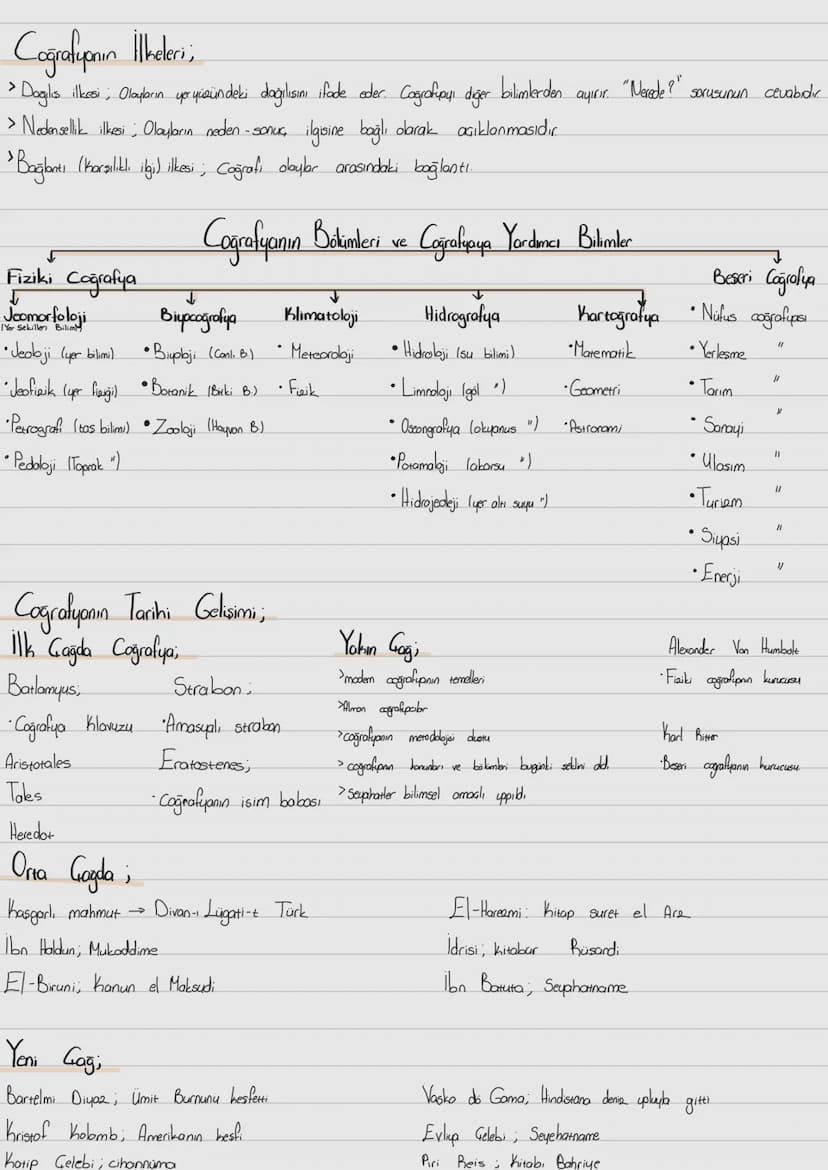 Coğrafyanın İlkeleri;
> Dağılış ilkesi; Olayların yeryüzündeki dağılışını ifade eder. Coğrafyayı diğer bilimlerden ayırır. "Nerede?" sorusunun cevabıdır
> Nedensellik ilkesi; Olayların neden-sonuç ilgisine bağlı olarak açıklanmasıdır
> Bağlantı (karşılıklı ilgi) ilkesi; Coğrafi olaylar arasındaki bağlantı.
Coğrafyanın Bölümleri ve Coğrafyaya Yardımcı Bilimler
Fiziki Coğrafya
Jeomorfoloji
(Yer Şekilleri Bilimi)
• Jeoloji (yer bilimi)
• Jeofizik (yer fiziği)
• Petrografi (taş bilimi)
• Pedoloji (Toprak ")
Biyocoğrafya
• Biyoloji (Canlı B.)
• Botanik (Bitki B.)
• Zooloji (Hayvan B)
Klimatoloji
• Meteoroloji
• Fizik
Hidrografya
• Hidroloji (su bilimi)
• Limnoloji (göl ")
• Oseongrafya (okyanus ")
• Potamaloji (akarsu ")
• Hidrojeoloji (yer altı suyu ")
Kartoğrafya
• Matematik
• Geometri
• Astronomi
Beşeri Coğrafya
• Nüfus coğrafyası
• Yerleşme "
• Tarım "
• Sanayi "
• Ulaşım "
• Turizm "
• Siyasi "
• Enerji "
Coğrafyanın Tarihi Gelişimi;
İlk Çağda Coğrafya;
Batlamyus;
• Coğrafya Klavuzu
Aristotales
Tales
Heredot
Strabon;
• Amasyalı strabon
Eratostenes;
• Coğrafyanın isim babası
Yakın Çağ;
> modern coğrafyanın temelleri
> Alman coğrafyacılar
> coğrafyanın metodolojisi
> coğrafyanın konuları ve bölümleri bugünkü şeklini aldı.
> Seyahatler bilimsel amaçlı yapıldı.
Alexander Von Humbolt
• Fiziki coğrafyanın kurucusu
Karl Ritter
• Beşeri coğrafyanın kurucusu.
Orta Çağda;
Kaşgarlı mahmut → Divan-ı Lügati-t Türk
İbn Haldun; Mukaddime
El-Biruni; Kanun el Maksudi
El-Harezmi: Kitap suret el Arz
İdrisi; kitabur Rüsardi
İbn Batuta; Seyahatname
Yeni Çağ;
Bartelmi Diyaz; Ümit Burnunu keşfetti
Kristof Kolomb; Amerikanın keşfi
Katip Çelebi; cihannüma
Vasko dö Gama; Hindistana deniz yoluyla gitti
Evliya Çelebi; Seyehatname
Piri Reis; Kitabı Bahriye